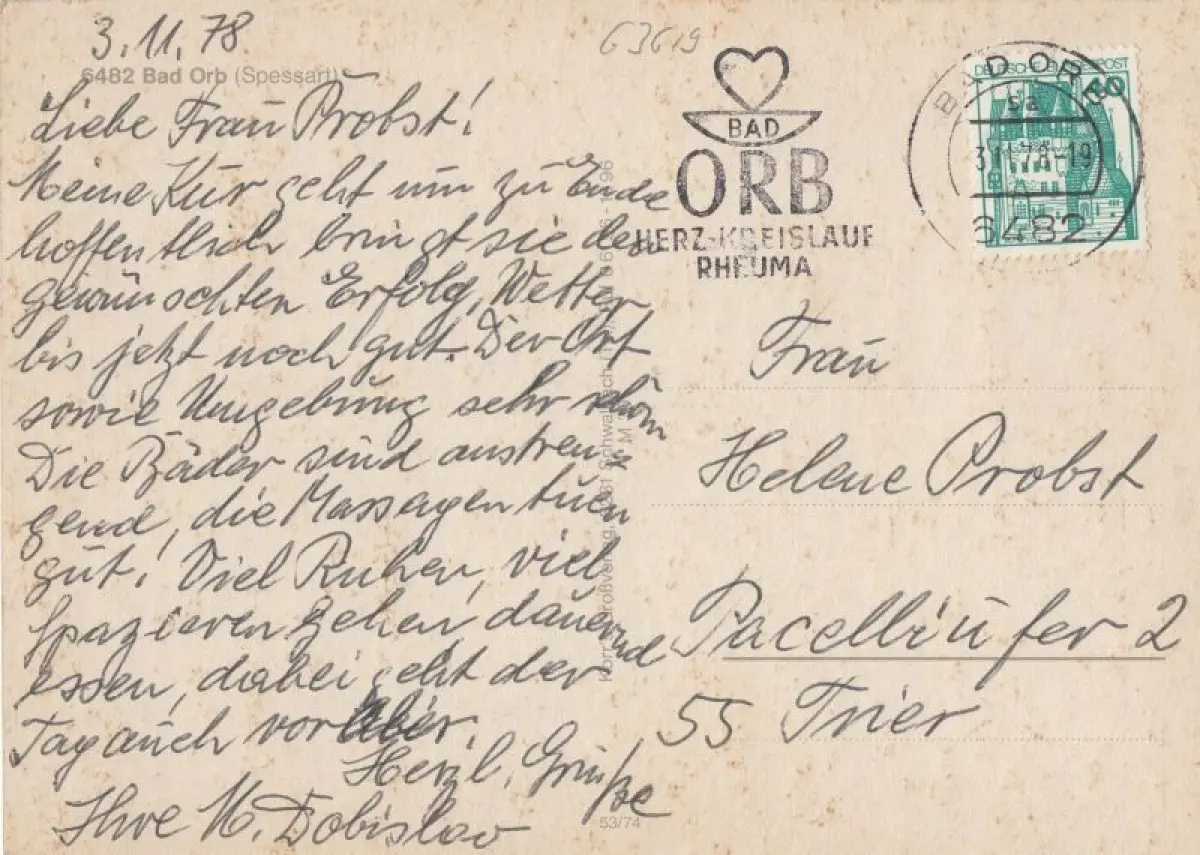 3.11.78
63619
6482 Bad Orb (Spessart)
Liebe Frau Probst!
Meine Kur geht nun zu Ende
hoffentlich bringt sie den
gewünschten Erfolg, Wetter
bis jetzt noch gut. Der Ort
sowie Umgebung sehr schön
Die Bäder sind anstren-
gend, die Massagen tuen
gut! Viel Ruhen, viel
spazieren gehen, dauernd
essen, dabei geht der
Tag auch vorüber.
Herzl. Grüße
Ihre M. Dobislav
BAD
ORB
HERZ-KREISLAUF
RHEUMA
DEUTSCHE BUNDESPOST
60
BAD ORB
sa
3.11.78-19
6482
Frau
Helene Probst
Pacelliufer 2
55 Trier
53/74